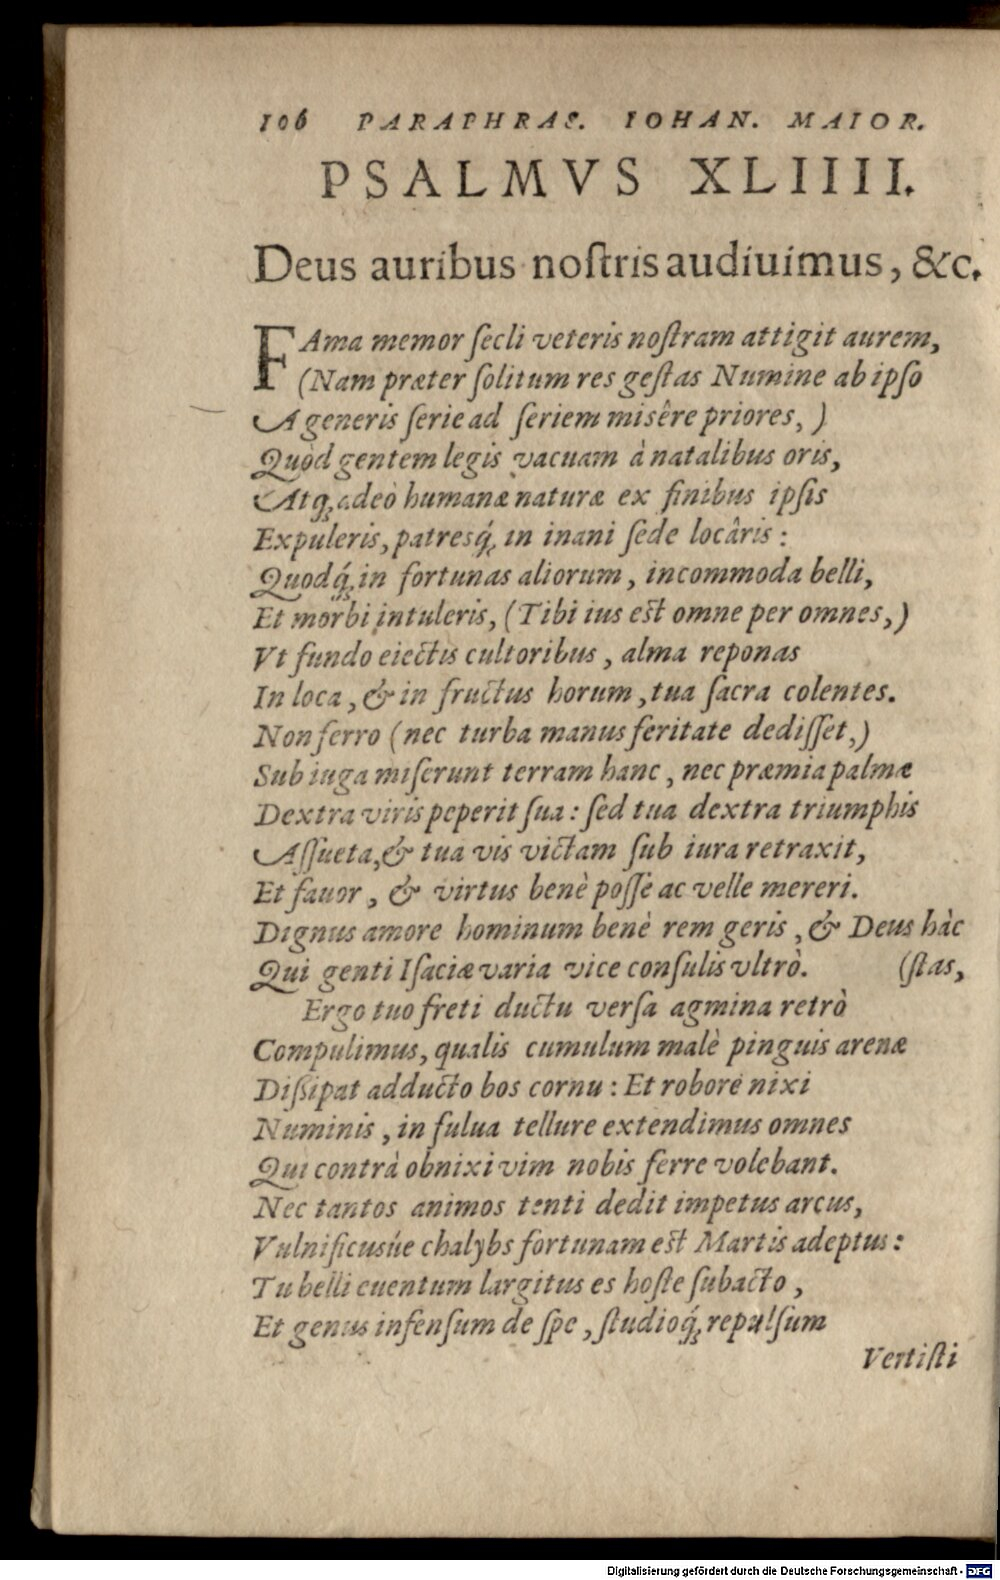 106 PARAPHRAS. IOHAN. MAIOR.
PSALMVS XLIIII.
Deus auribus noſtris audiuimus, &c.
FAma memor ſecli veteris noſtram attigit aurem,
(Nam præter ſolitum res geſtas Numine ab ipſo
A generis ſerie ad ſeriem misêre priores, )
Quòd gentem legis vacuam à natalibus oris,
Atq; adeò humanæ naturæ ex finibus ipſis
Expuleris, patresq́; in inani ſede locâris :
Quodq́; in fortunas aliorum, incommoda belli,
Et morbi intuleris, (Tibi ius eſt omne per omnes,)
Vt fundo eiectis cultoribus, alma reponas
In loca, & in fructus horum, tua ſacra colentes.
Non ferro (nec turba manus feritate dediſſet,)
Sub iuga miſerunt terram hanc, nec præmia palmæ
Dextra viris peperit ſua : ſed tua dextra triumphis
Aſſueta, & tua vis victam ſub iura retraxit,
Et fauor, & virtus benè poſſe ac velle mereri.
Dignus amore hominum benè rem geris, & Deus hàc
Qui genti Iſaciæ varia vice conſulis vltrò. (ſtas,
Ergo tuo freti ductu verſa agmina retrò
Compulimus, qualis cumulum malè pinguis arenæ
Diſſipat adducto bos cornu : Et robore nixi
Numinis, in fulua tellure extendimus omnes
Qui contrà obnixi vim nobis ferre volebant.
Nec tantos animos tenti dedit impetus arcus,
Vulnificusúe chalybs fortunam eſt Martis adeptus :
Tu belli euentum largitus es hoſte ſubacto,
Et genus infenſum de ſpe, ſtudioq́; repulſum
Vertiſti
Digitalisierung gefördert durch die Deutsche Forschungsgemeinschaft - DFG